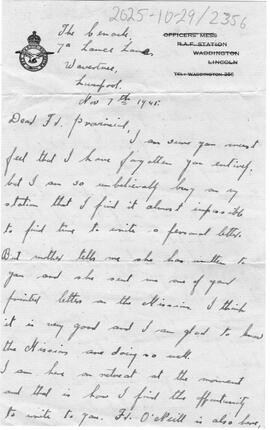 2025-10-29/2356
OFFICERS MESS
R.A.F. STATION
WADDINGTON
LINCOLN
TEL: WADDINGTON
The Cenacle,
7a Lance Lane,
Wavertree,
Liverpool.
Nov 7th 1941.
Dear Fr. Provincial,
I am sure you must
feel that I have forgotten you entirely,
but I am so unbelievably busy on my
station that I find it almost impossible
to find time to write a personal letter.
But mother tells me she has written to
you and she sent me one of your
printed letters on the Mission. I think
it is very good and I am glad to know
the Missions are doing so well.
I am here on retreat at the moment
and that is how I find the opportunity
to write to you. Fr. O'Neill is also here,